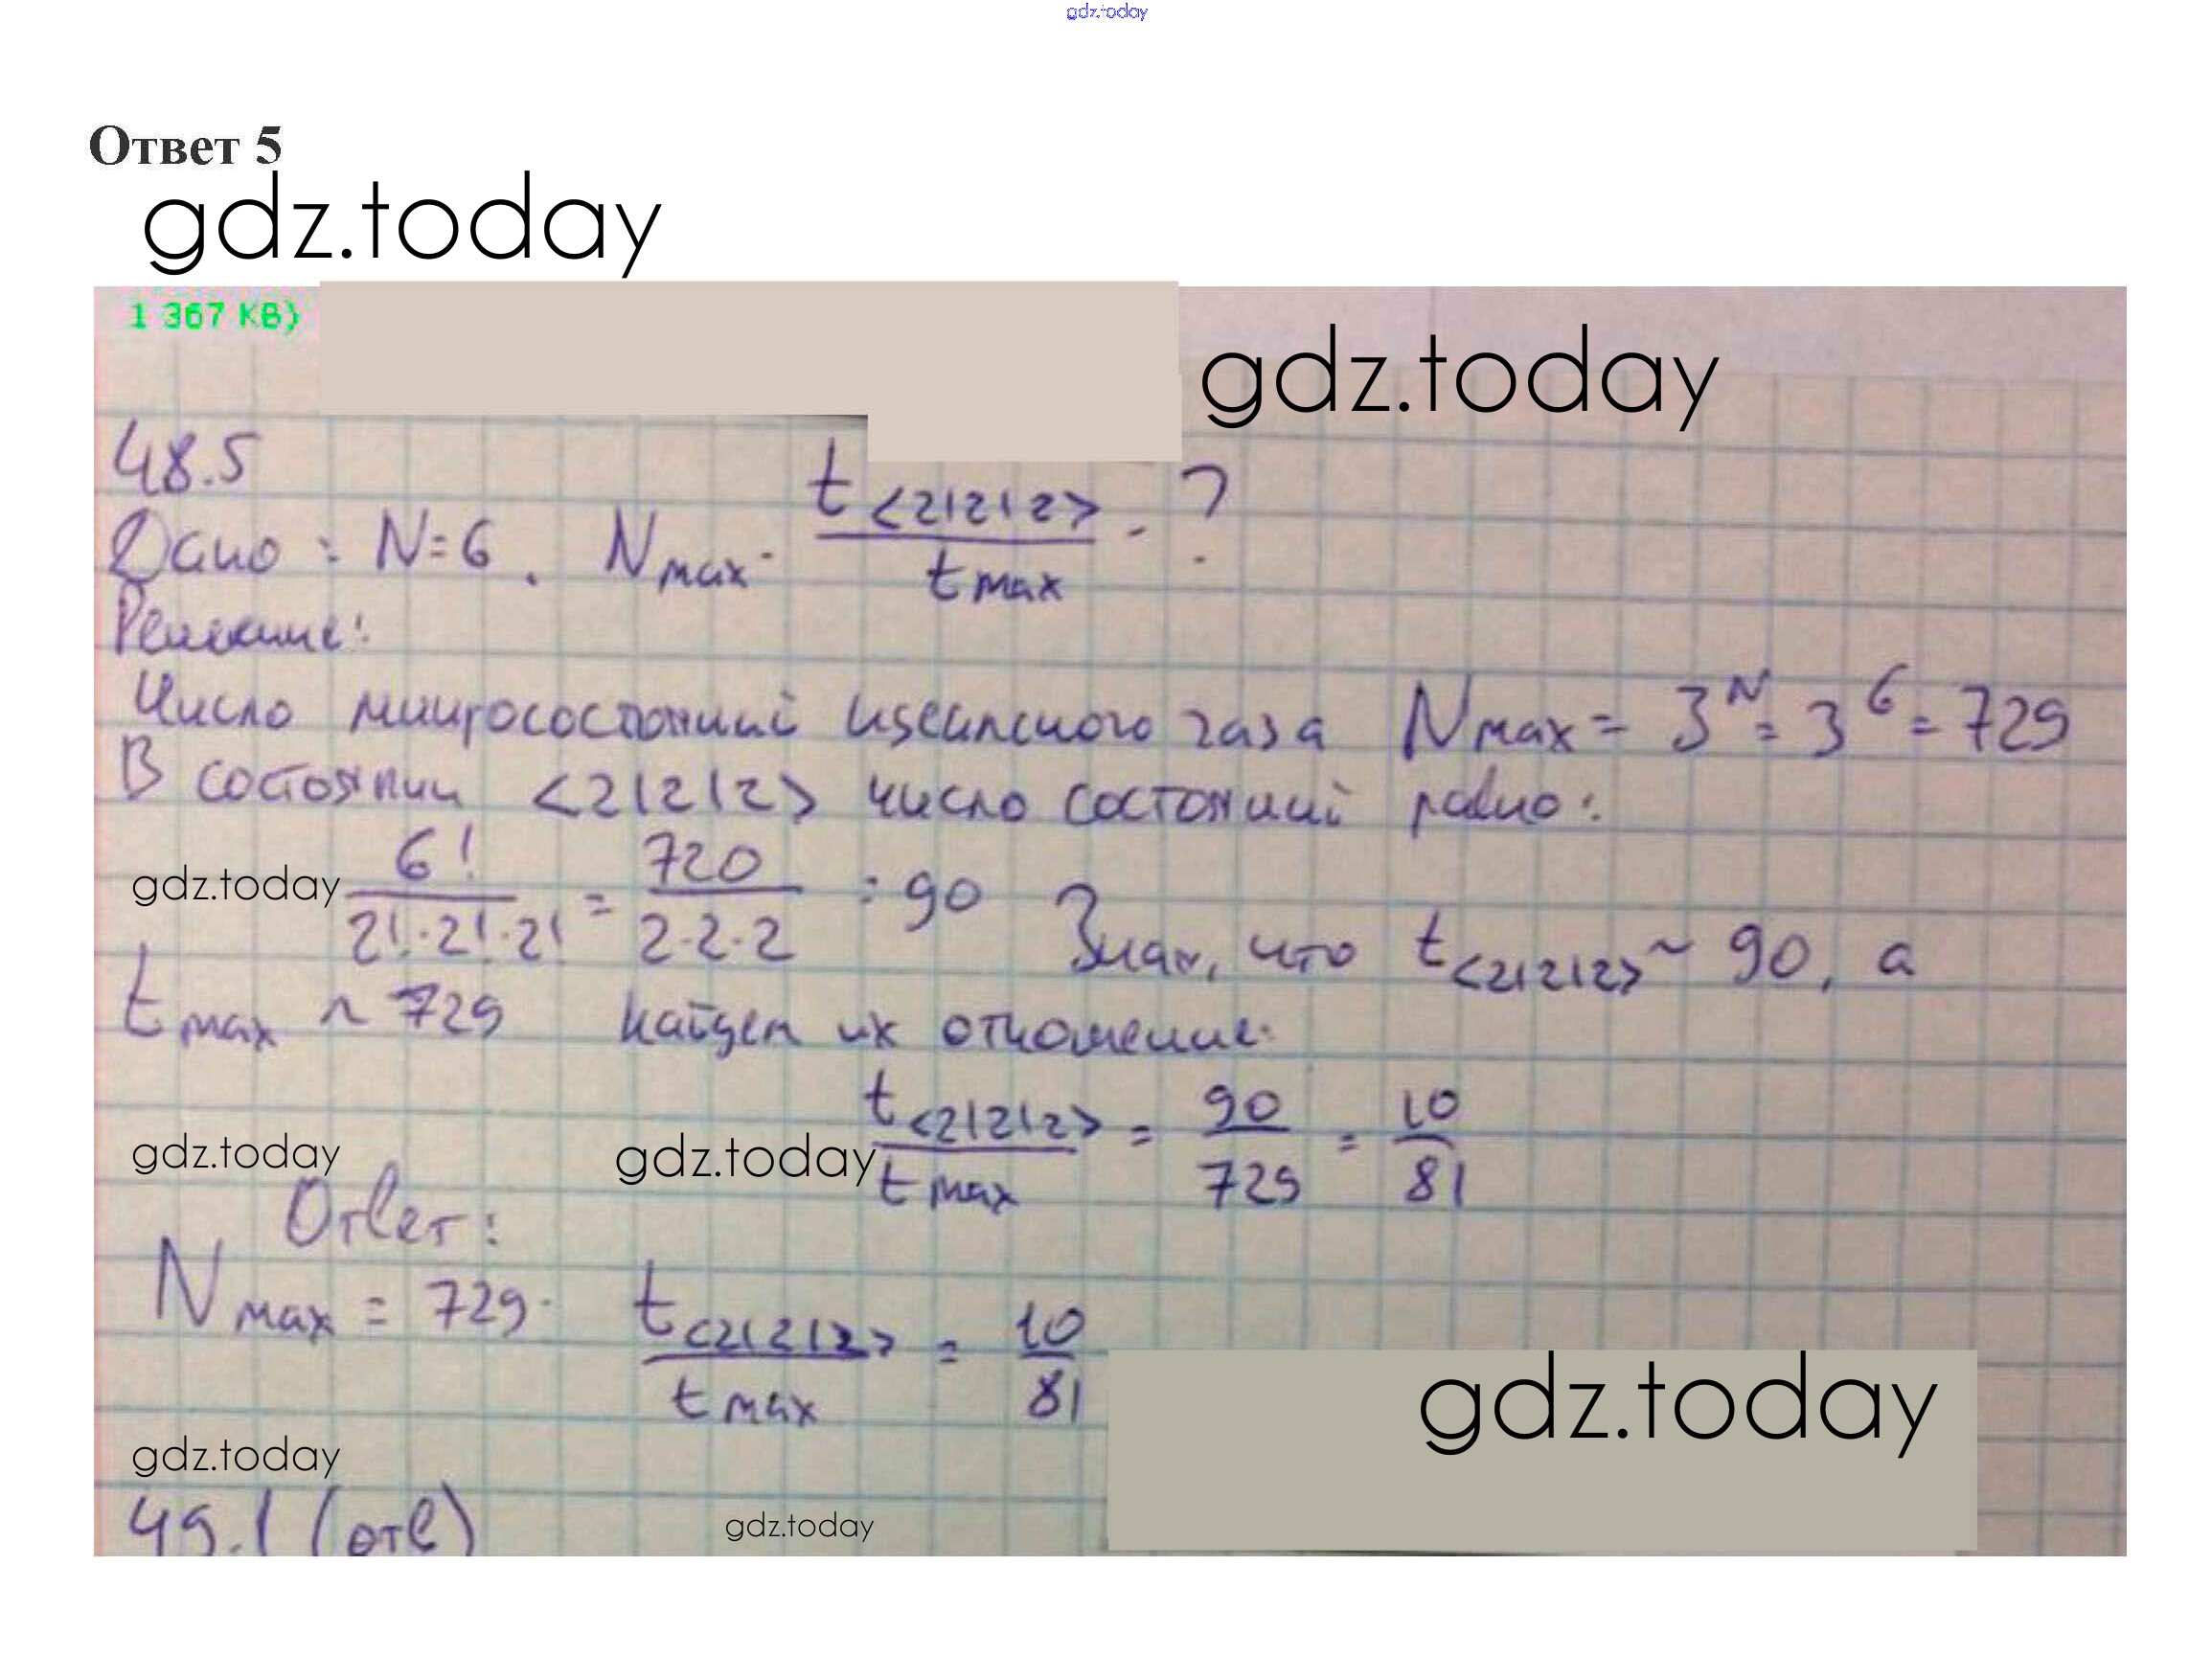 gdz.today
Ответ 5
gdz.today
1 367 KB)
gdz.today
48.5
Дано: N=6. Nmax. t<2|2|2> / tmax - ?
Решение:
Число микросостояний идеального газа Nmax = 3^N = 3^6 = 729
В состоянии <2|2|2> число состояний равно:
gdz.today 6! / 2!·2!·2! = 720 / 2·2·2 = 90 Зная, что t<2|2|2> ~ 90, а
tmax ~ 729 найдем их отношение:
gdz.today gdz.today t<2|2|2> / tmax = 90 / 729 = 10 / 81
Ответ:
Nmax = 729. t<2|2|2> / tmax = 10 / 81
gdz.today
gdz.today
49.1 (отв)
gdz.today